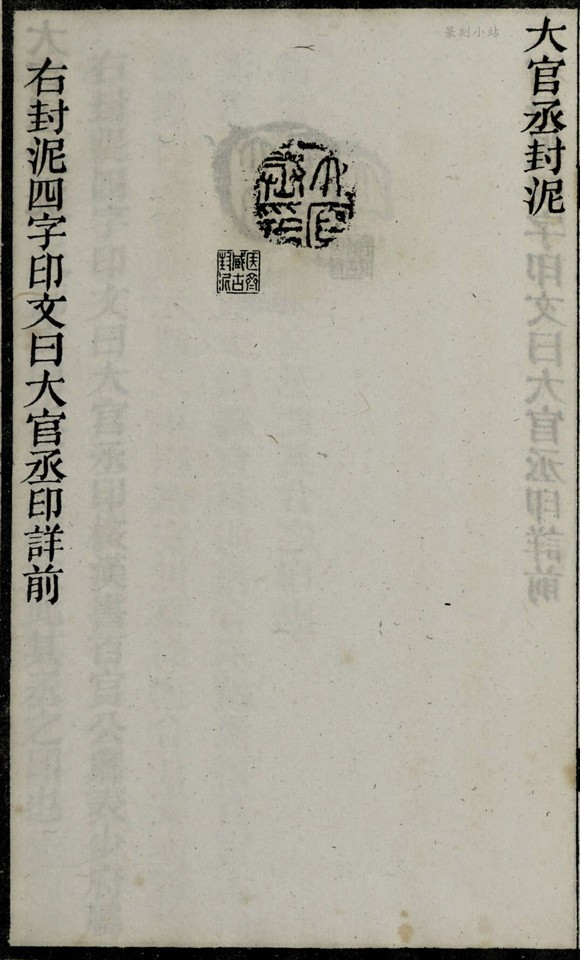 大官丞封泥
篆刻小站
大官丞印
右封泥四字印文曰大官丞印詳前